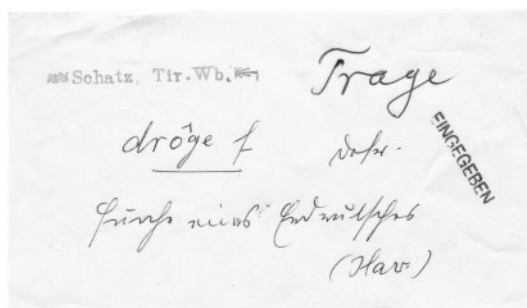 Schatz, Tir.Wb.
Trage
EINGEGEBEN
dröge f Defr.
Furche eines Erdrutsches